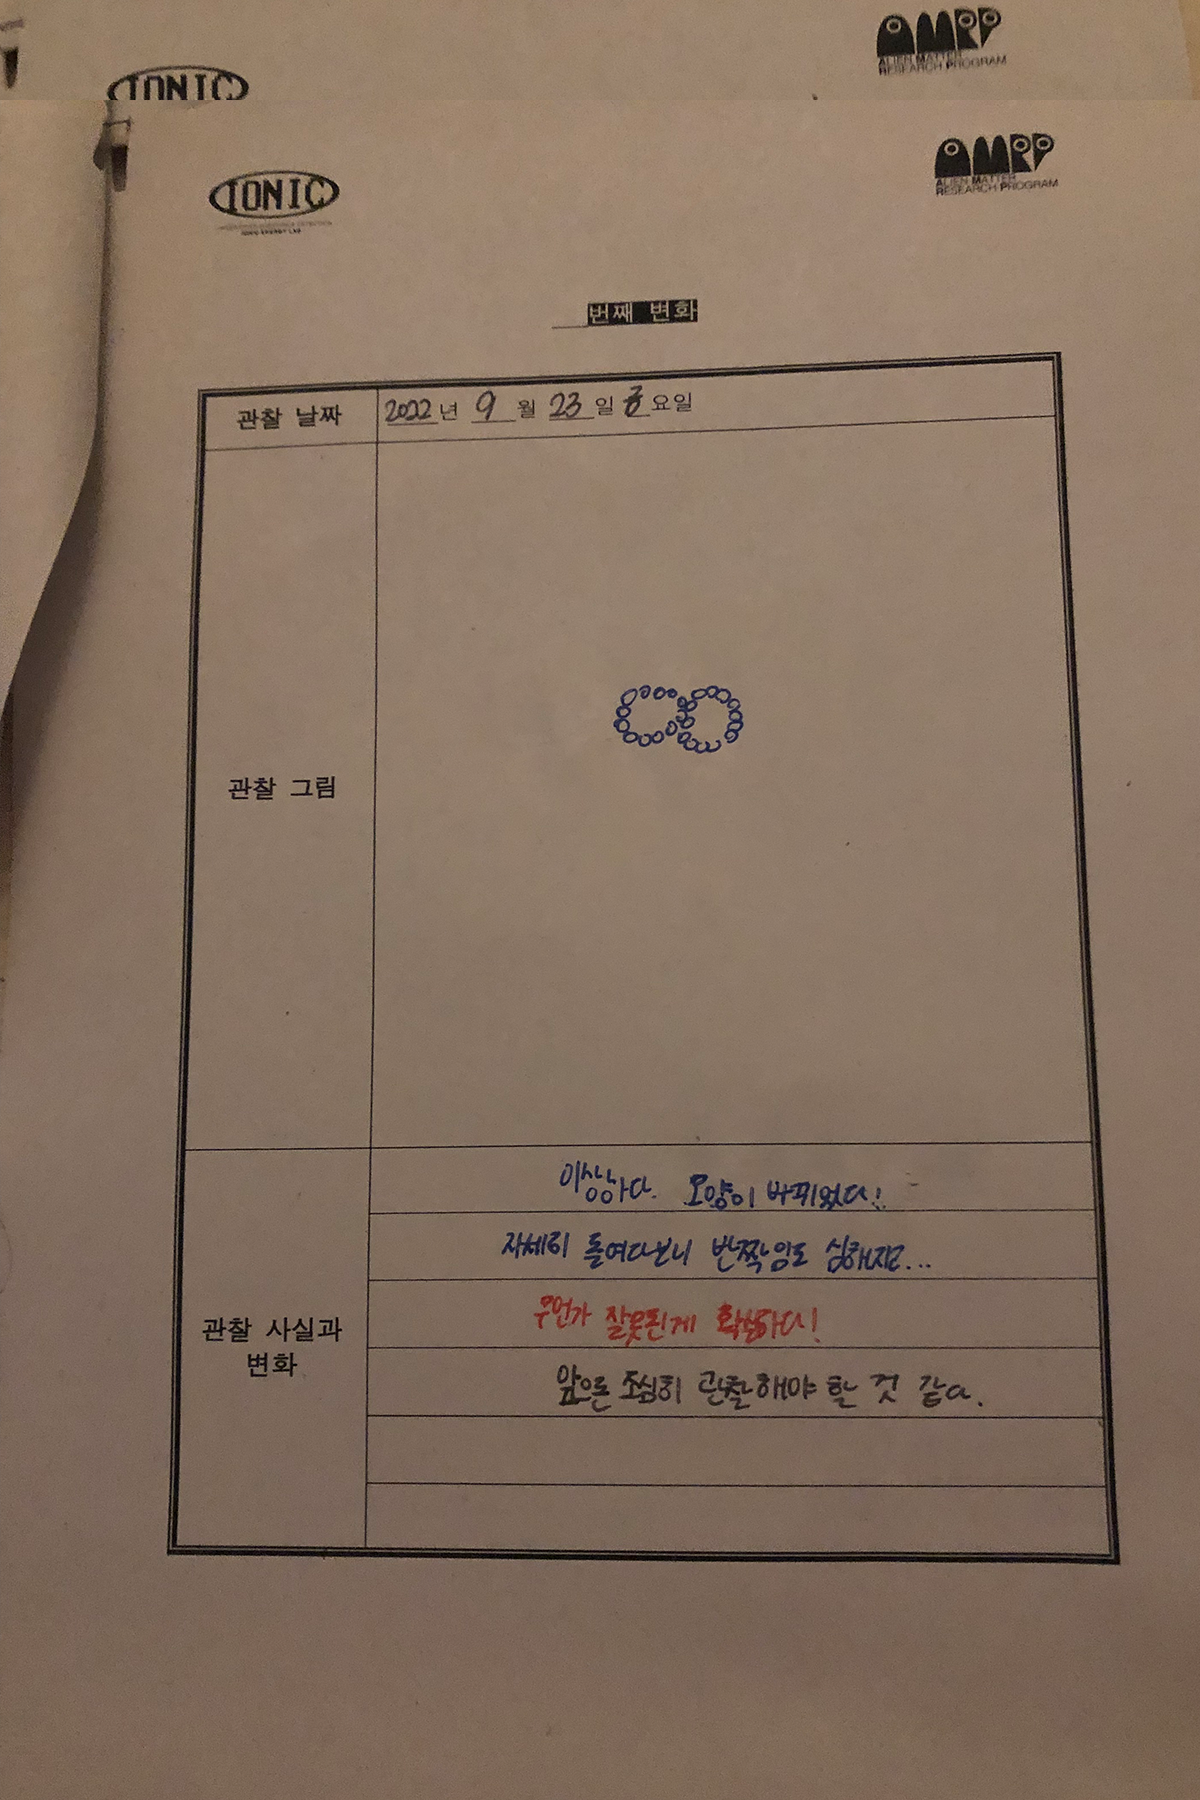 AMRP
ALIEN MATTER
RESEARCH PROGRAM
IONIC
AMRP
ALIEN MATTER
RESEARCH PROGRAM
IONIC
IONIC ENERGY LAB
___번째 변화
관찰 날짜
2022년 9월 23일 금요일
관찰 그림
관찰 사실과
변화
이상하다. 모양이 바뀌었다!
자세히 들여다보니 반짝임도 심해지고...
무언가 잘못된게 확실하다!
앞으론 조심히 관찰해야 할 것 같다.